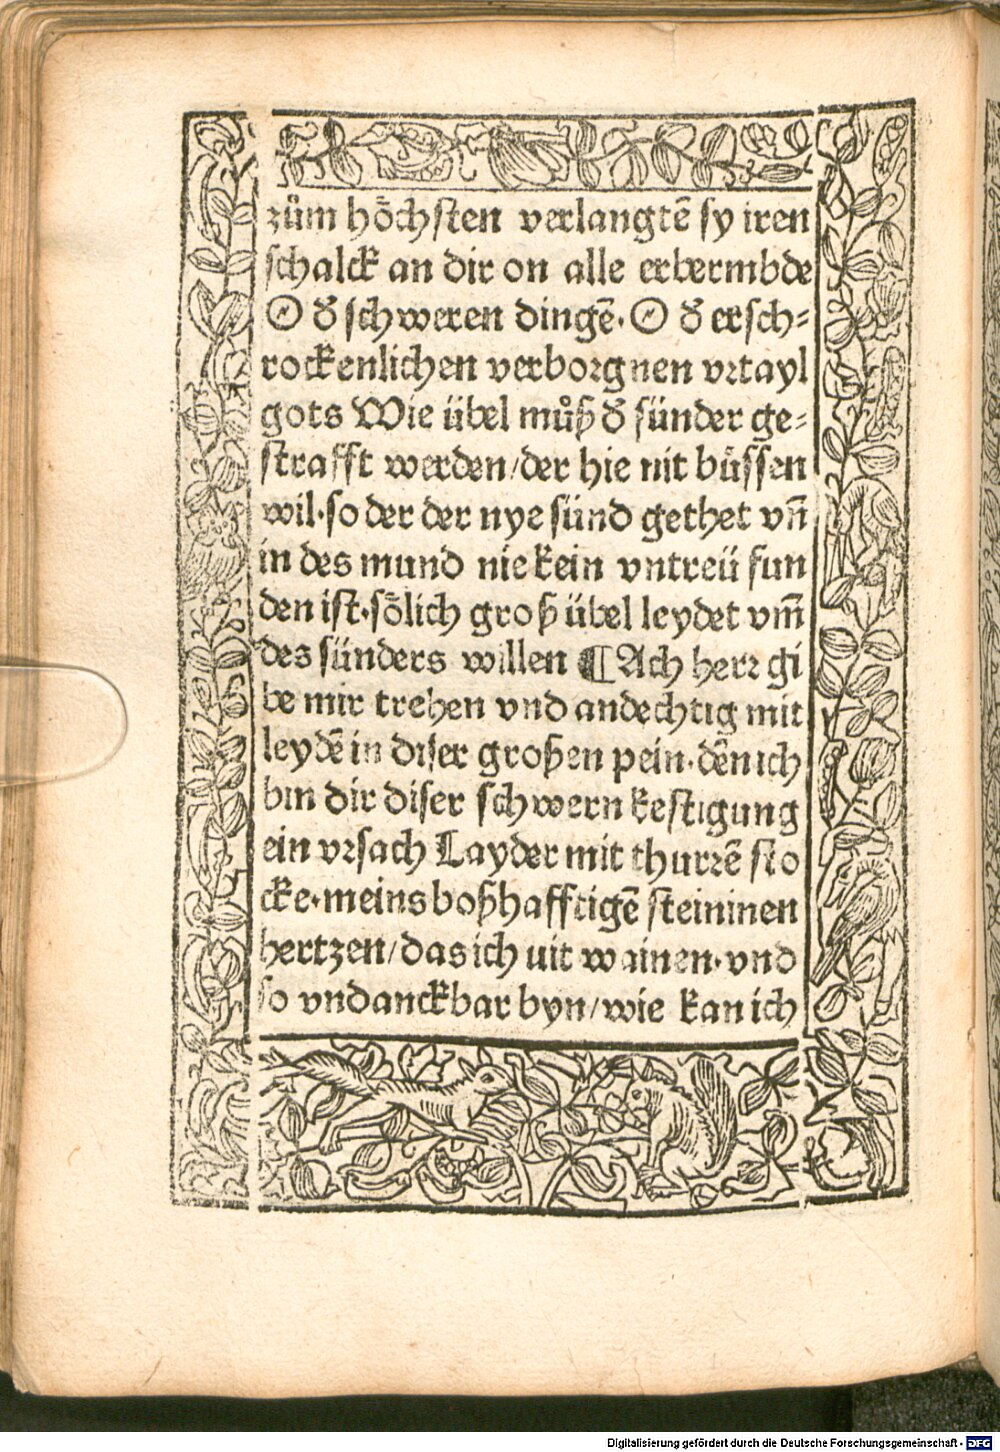 zům hoͤchsten verlangtē sy iren
schalck an dir on alle erbermbde
O d̕ schweren dingē. O d̕ ersch⸗
rockenlichen verborgnen vrtayl
gots Wie übel můß d̕ sünder ge⸗
strafft werden/der hie nit büssen
wil.so der der nye sünd gethet vn̄
in des mund nie kein vntreü fun
den ist.soͤlich groß übel leydet vm̄
des sünders willen ¶ Ach herr gi
be mir trehen vnd andechtig mit
leydē in diser großen pein.dēn ich
bin dir diser schwern kestigung
ein vrsach Layder mit thurrē sto
cke.meins boßhafftigē steininen
hertzen/das ich uit wainen.vnd
so vndanckbar byn/wie kan ich
Digitalisierung gefördert durch die Deutsche Forschungsgemeinschaft - DFG